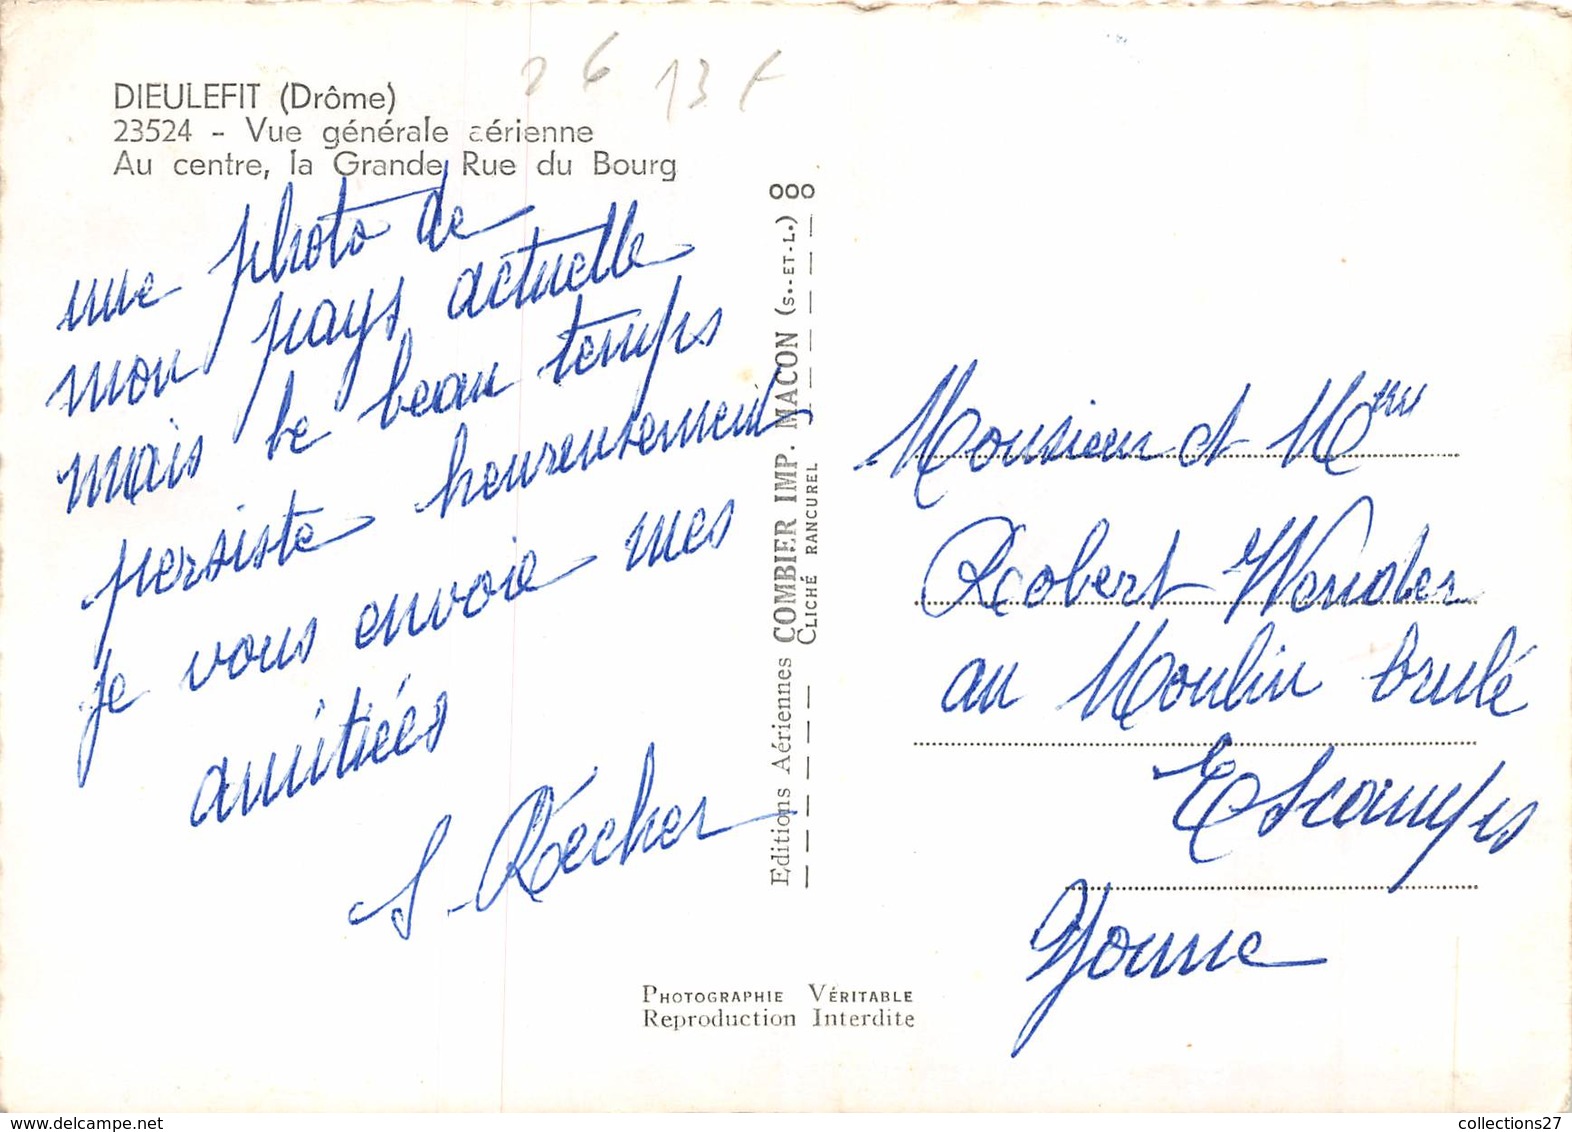 26 13 F
DIEULEFIT (Drôme)
23524 - Vue générale aérienne
Au centre, la Grande Rue du Bourg
une photo de
mon pays actuelle
mais le beau temps
persiste heureusement
je vous envoie mes
amitiées
S. Récher
Editions Aériennes COMBIER IMP. MACON (S.-ET-L.) 000
CLICHÉ RANCUREL
Monsieur et Mme
Robert Wender
au Moulin brulé
Escamps
Yonne
PHOTOGRAPHIE VÉRITABLE
Reproduction Interdite
collections27